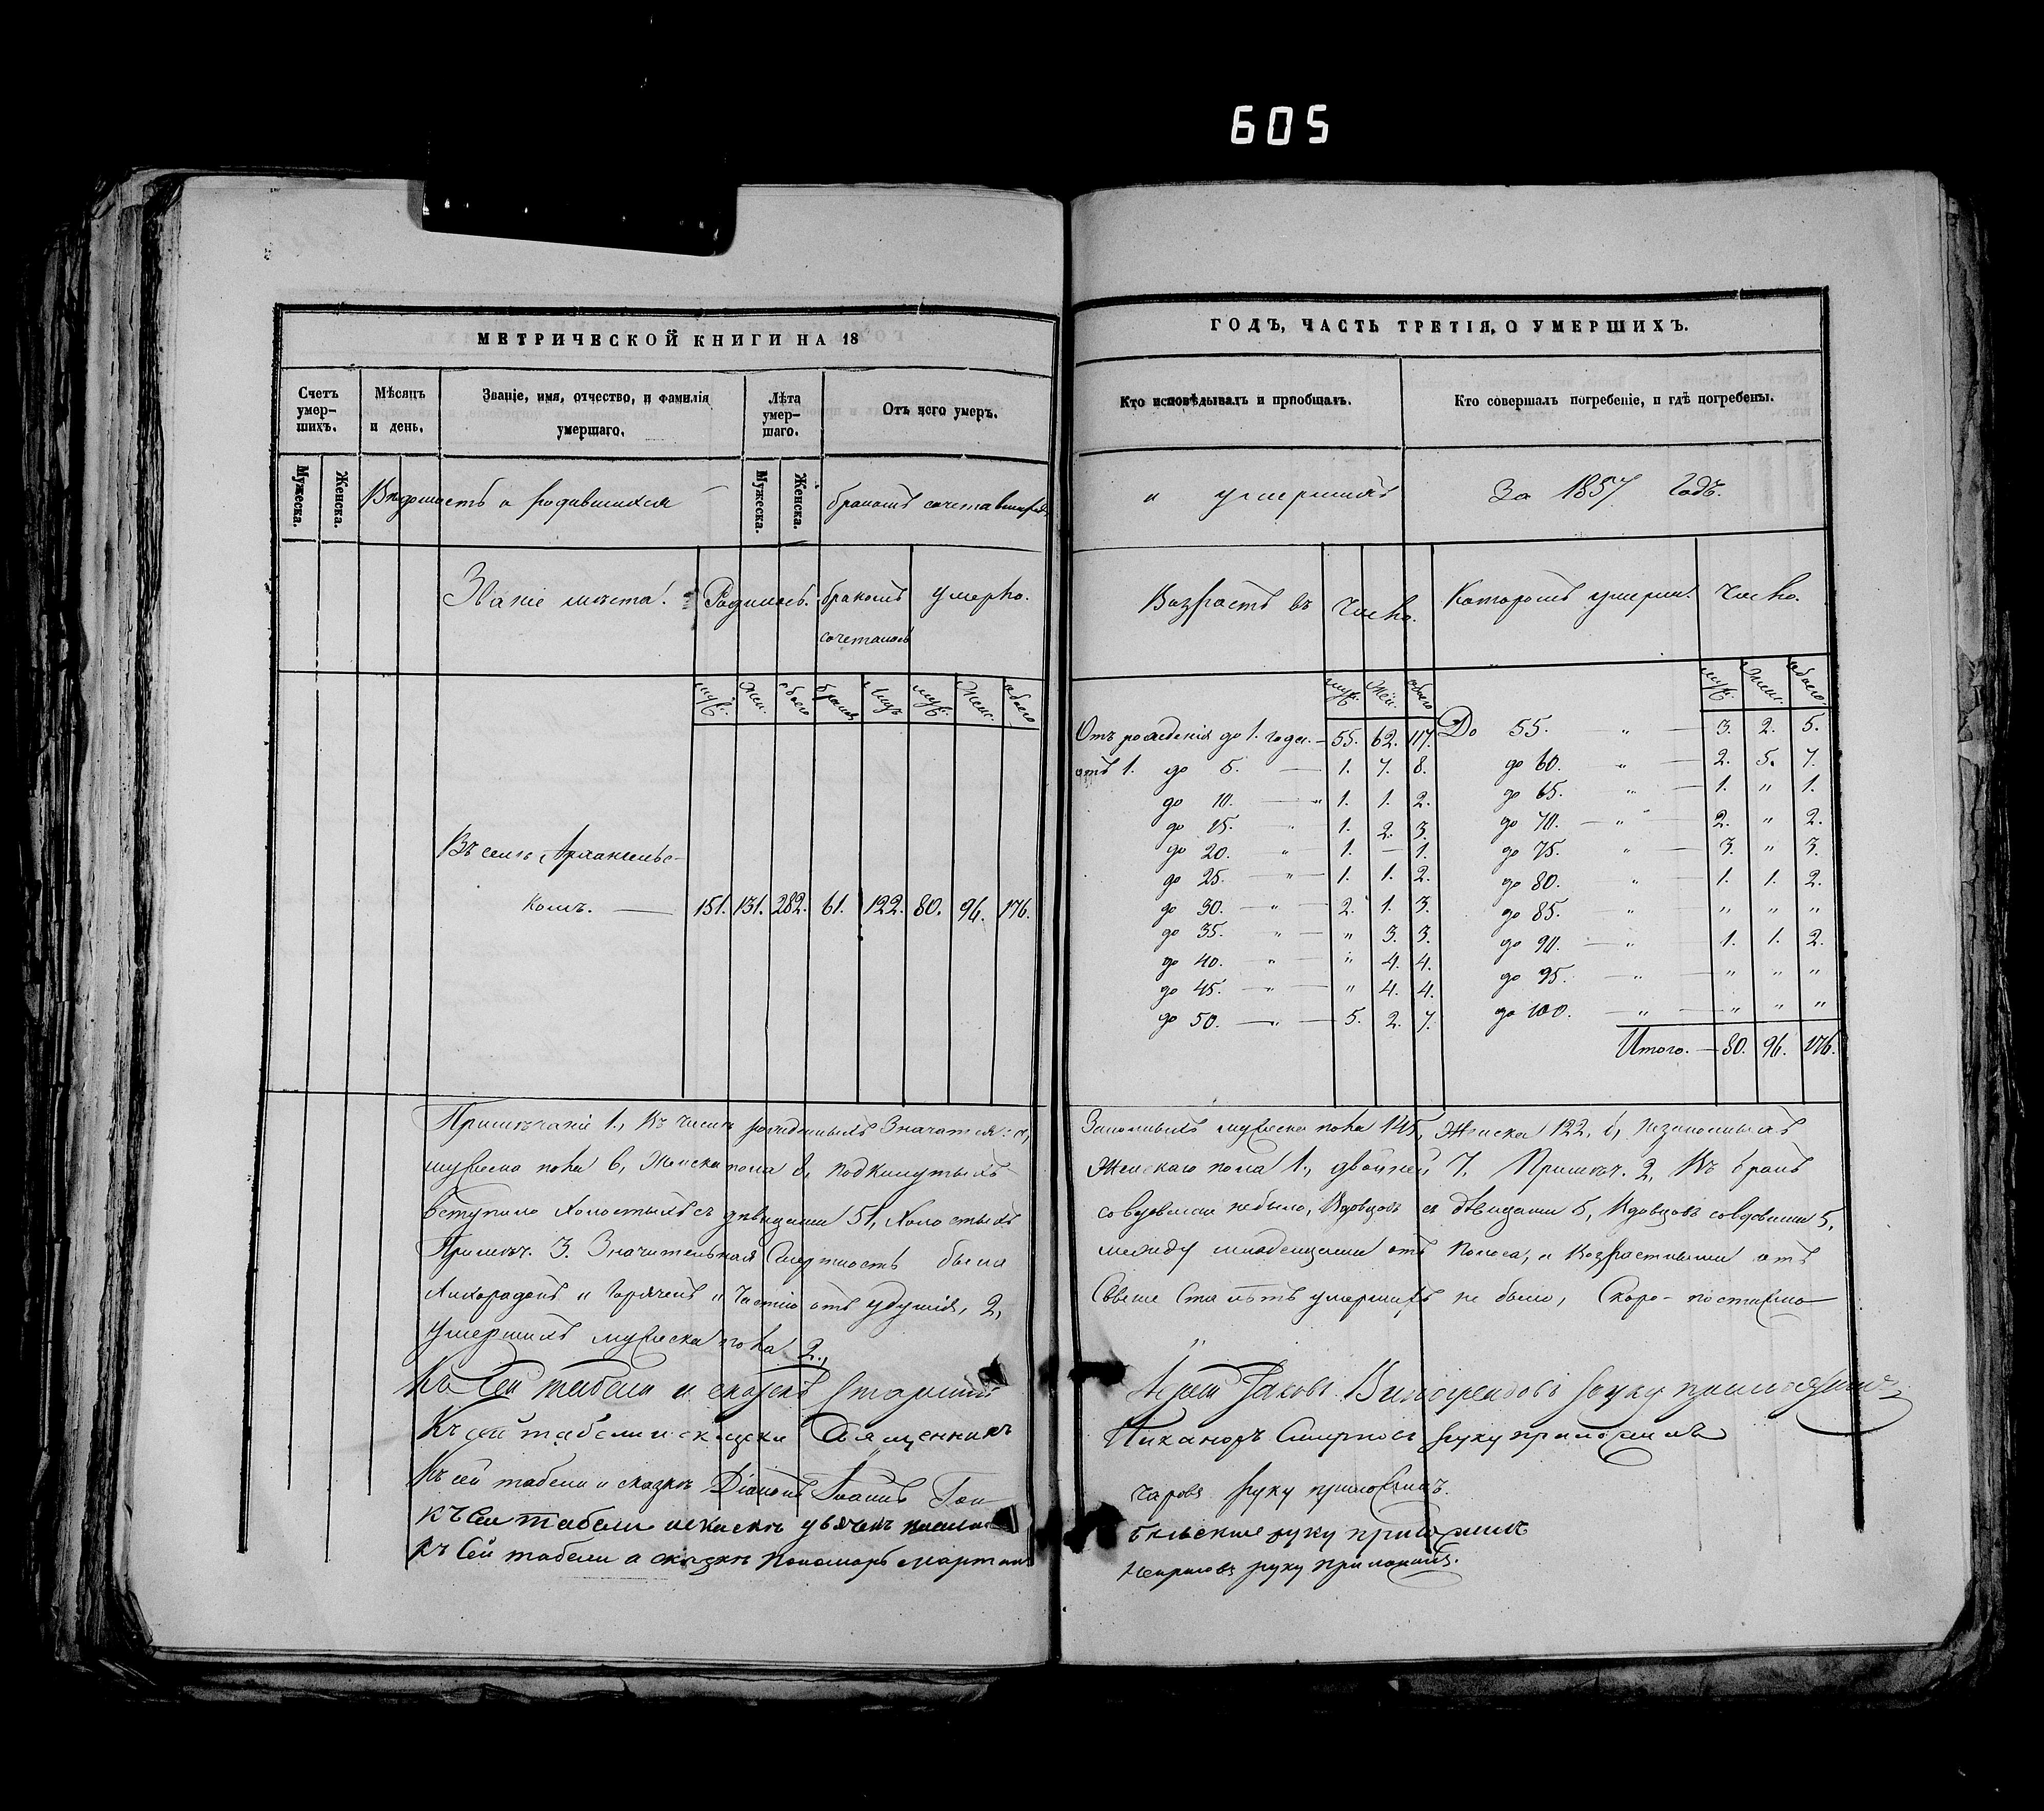 605
МЕТРИЧЕСКОЙ КНИГИ НА 18
Счетъ умер-шихъ.
Мѣсяцъ и день.
Званіе, имя, отчество, и фамилія умершаго.
Лѣта умер-шаго.
Отъ чего умеръ.
Мужеска.
Женска.
Вѣдомость о родившихся
Мужеска.
Женска.
бракомъ сочетавшихся
Званіе мѣста.
Родилось.
бракомъ сочеталось
умерло.
муж. Жен. обоего браковъ лицъ муж. Женс. обоего
Въ селѣ Архангельс-
комъ. — 151. 131. 282. 61. 122. 80. 96. 176.
Примѣчаніе 1, Въ числѣ рожденныхъ Значатся: а,
мужеска пола 6, Женска пола 8, подкинутыхъ
вступило холостыхъ съ дѣвицами 51, холостыхъ
Примѣч. 3. Значительная Смертность была
Лихорадокъ и Горячекъ и Частію отъ удушія, 2,
умершихъ мужеска пола 2.,
Къ Сей табели и сказкѣ Старшій
Къ сей табели и сказки Священникъ
Къ сей табели и сказкѣ Діаконъ Іоаннъ Гон
Къ Сей табели и сказкѣ дьячекъ
Къ Сей табели и сказкѣ пономарь Мартин
ГОДЪ, ЧАСТЬ ТРЕТІЯ, О УМЕРШИХЪ.
Кто исповѣдывалъ и пріобщалъ.
Кто совершалъ погребеніе, и гдѣ погребены.
и умершихъ
За 1857 Годъ.
Возрастъ въ
Число.
Которомъ умерли.
Число.
муж. Жен. обоего
муж. Женс. обоего
Отъ рожденія до 1. года. — 55. 62. 117.
отъ 1. до 5. — 1. 7. 8.
до 10. — " 1. 1. 2.
до 15. " 1. 2. 3.
до 20. " — 1. — 1.
до 25. — " — 1. 1. 2.
до 30. — " — 2. 1. 3.
до 35. " — " 3. 3.
до 40. — " — " 4. 4.
до 45. — " — " 4. 4.
до 50. — " — 5. 2. 7.
До 55. " — 3. 2. 5.
до 60. " — 2. 5. 7.
до 65. " — 1. " 1.
до 70. — " — 2. " 2.
до 75. " — 3. " 3.
до 80. " — 1. 1. 2.
до 85. " — " " "
до 90. — " — 1. 1. 2.
до 95. — " — " " "
до 100. — " — " " "
Итого. — 80. 96. 176.
Законныхъ мужеска пола 145, Женска 122, б, незаконныхъ
Женскаго пола 1., двойней 7, Примѣч. 2, Въ бракъ
со вдовами небыло, Вдовцовъ съ дѣвицами 5, Вдовцовъ со вдовами 5,
между младенцами отъ поноса, и Возрастными отъ
Свыше Ста лѣтъ умершихъ не было, Скоро-постижно
Іерей Іаковъ Виноградовъ руку приложилъ
Никаноръ Смирновъ руку приложилъ
чаровъ руку приложилъ.
бѣльскій руку приложилъ
руку приложилъ.